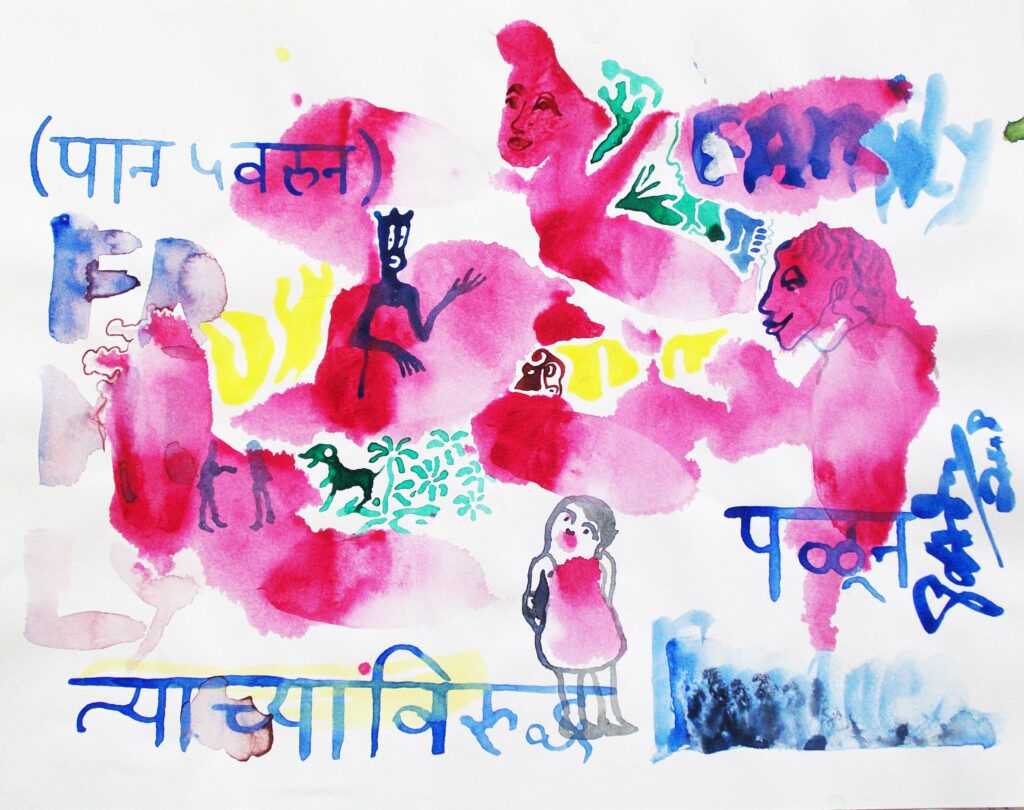 (पान ५ वरून)
FAMILY
FA
MI
LY
पळून
त्याच्याविरुद्ध